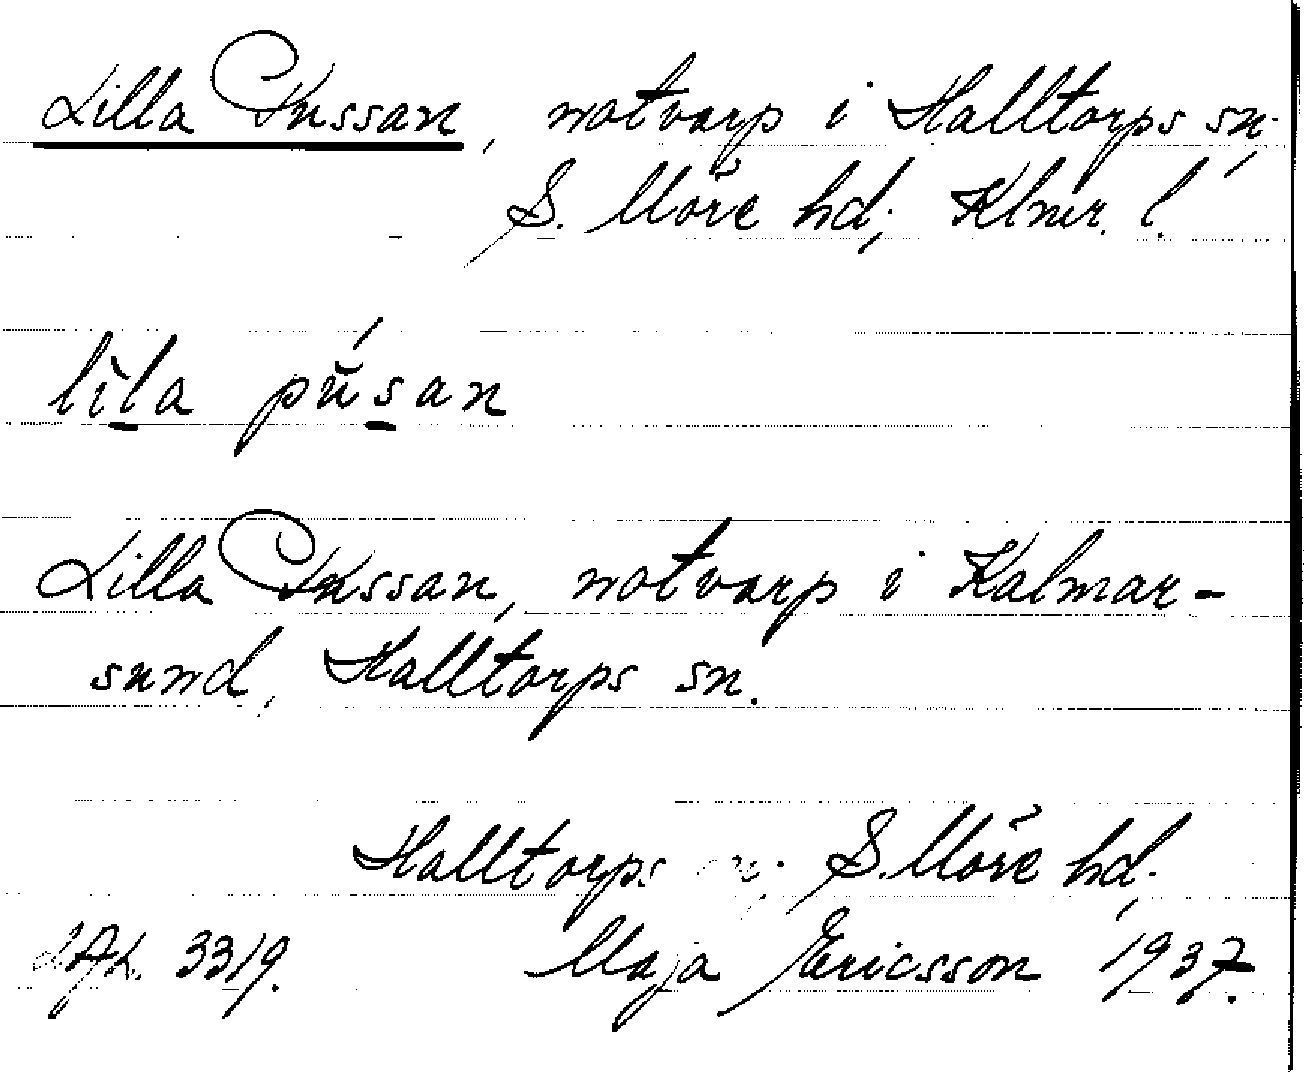 Lilla Pussan, notvarp i Halltorps sn,
S. Möre hd; Klmr. l.
lĭla pŭ́san
Lilla Pussan, notvarp i Kalmar-
sund, Halltorps sn.
Halltorps sn; S. Möre hd,
3319. Maja Ericsson 1937.